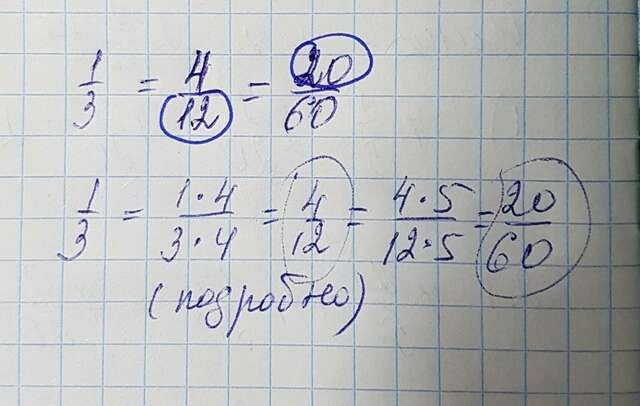 1/3 = 4/12 = 20/60
1/3 = 1·4/3·4 = 4/12 = 4·5/12·5 = 20/60
(подробно)